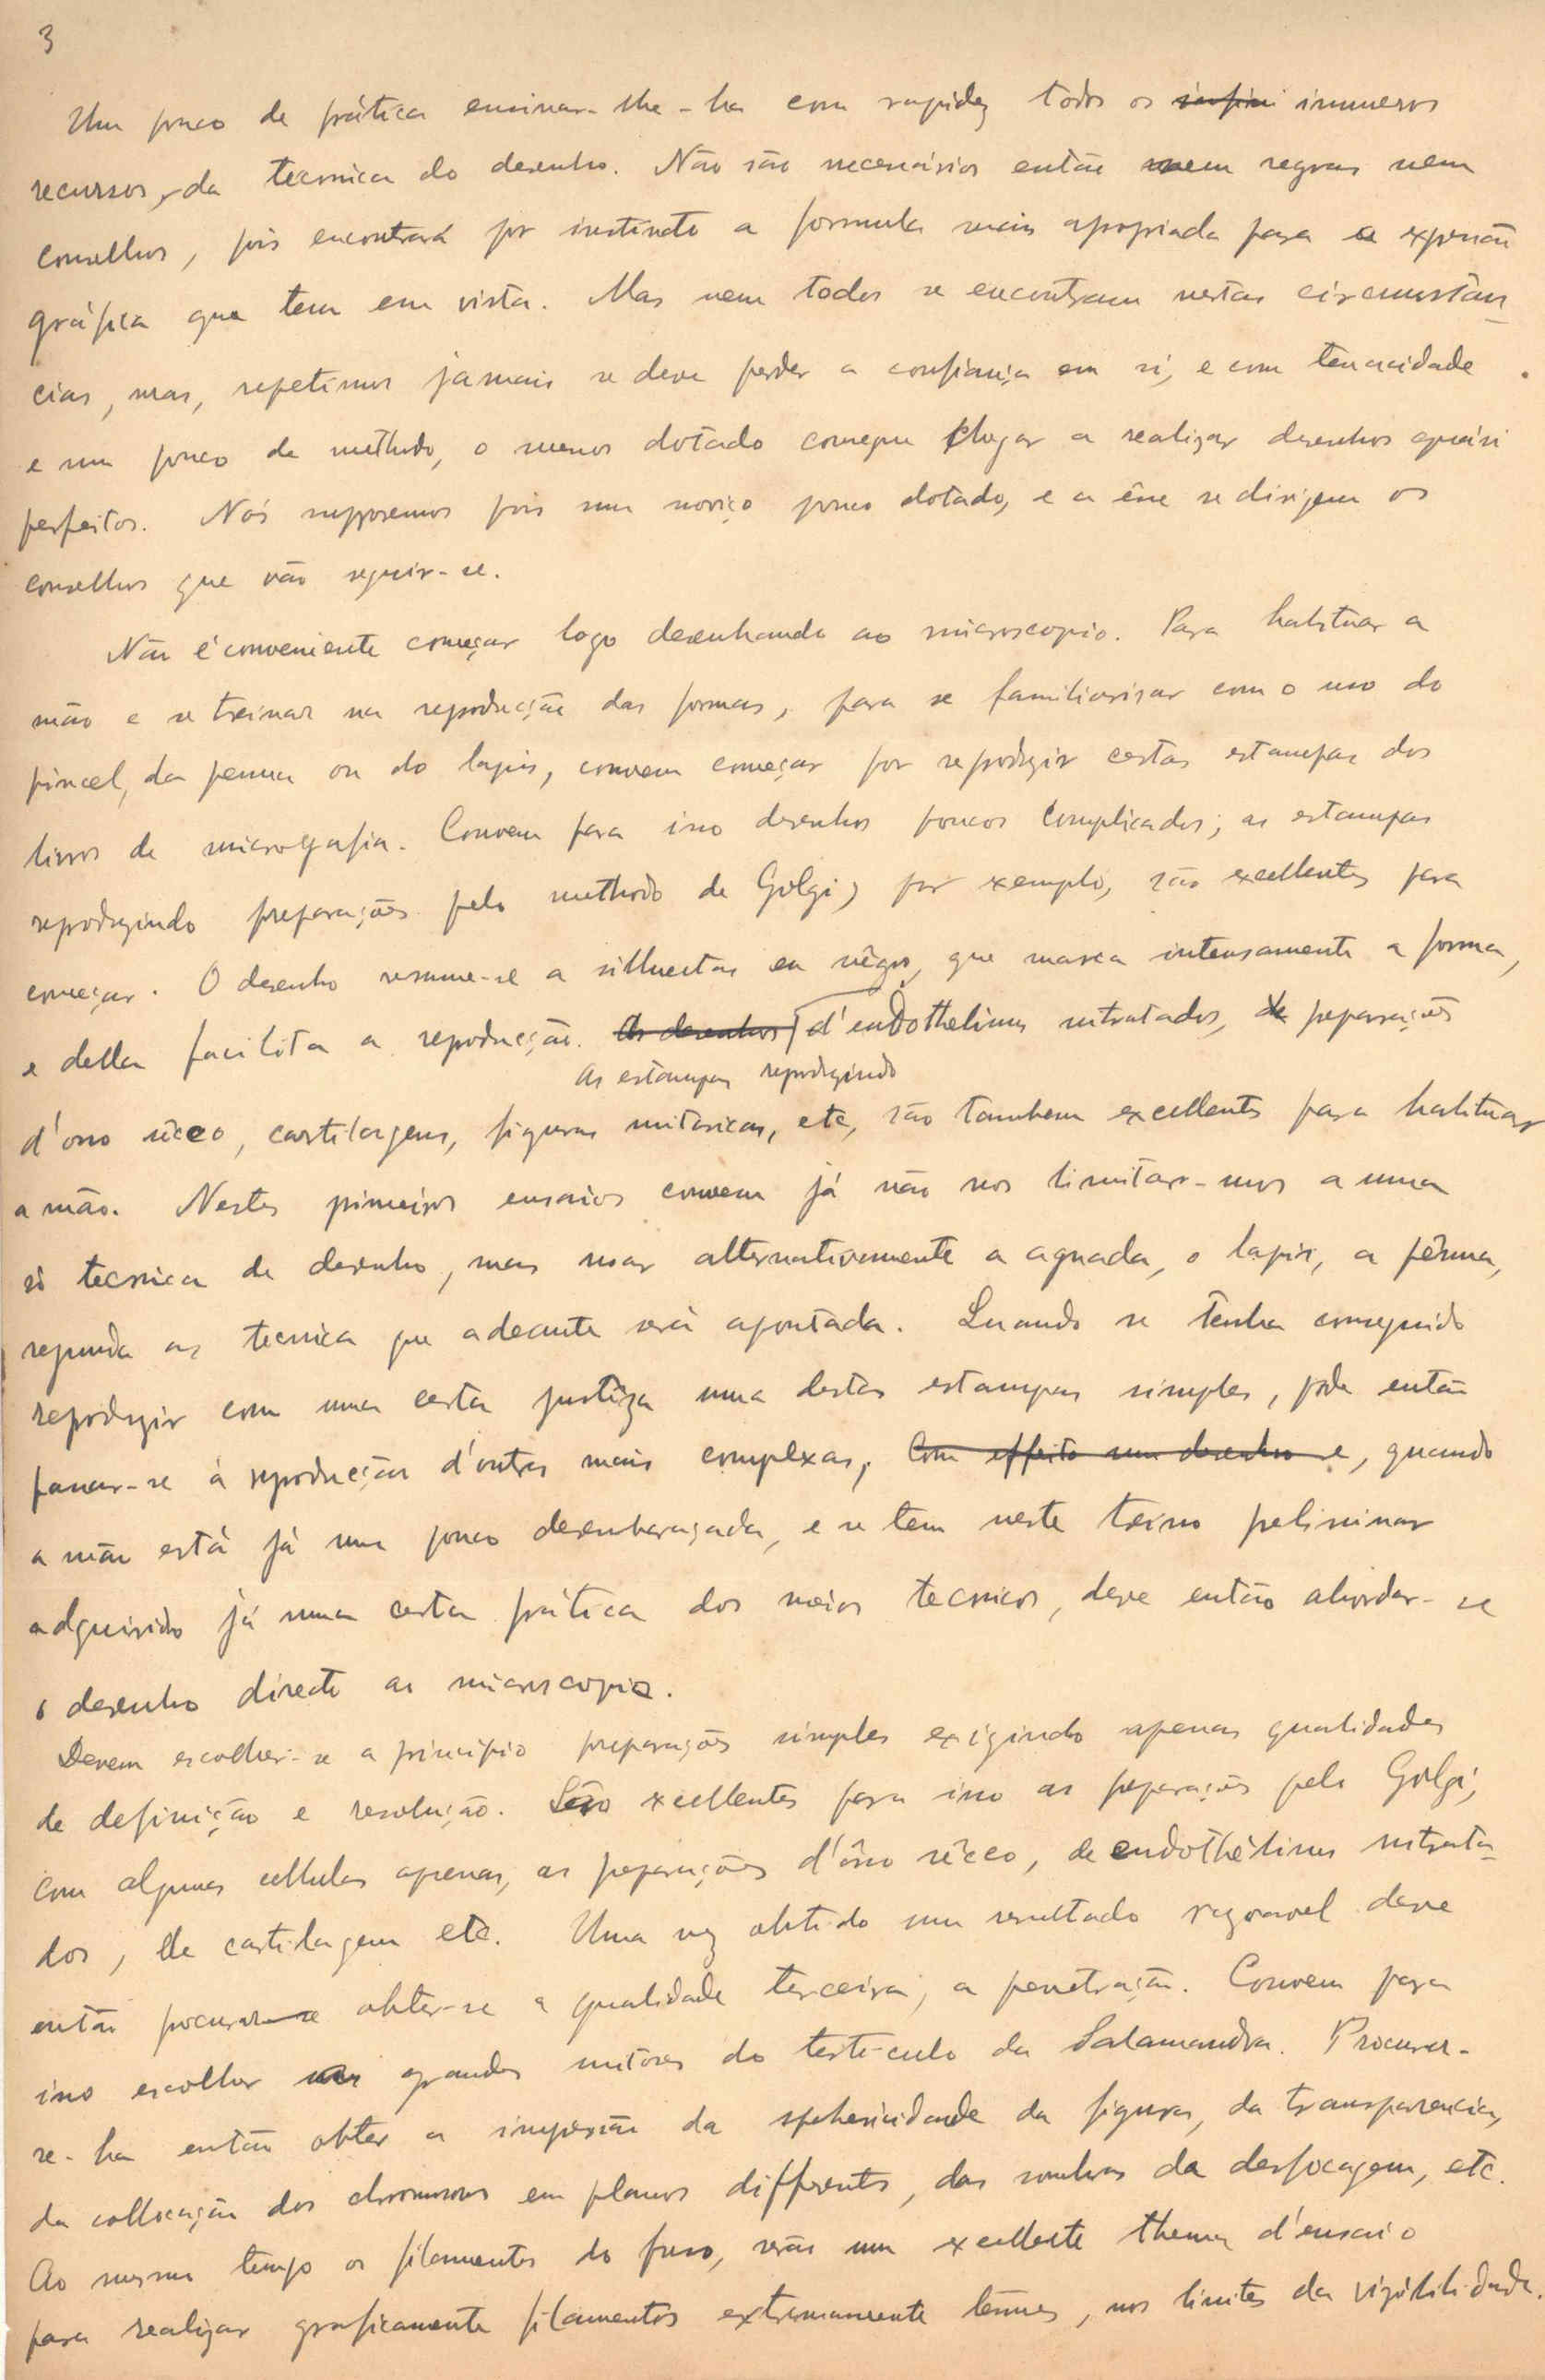 3
Um pouco de prática ensinar-lhe-ha com rapidez todos os infini inumeros
recursos, da tecnica do desenho. Não são necessários então nem regras nem
conselhos, pois encontrará por instincto a formula mais apropriada para a expressão
gráfica que tem em vista. Mas nem todos se encontram nestas circumstân-
cias, mas, repetimos jamais se deve perder a confiança em si, e com tenacidade
e um pouco de methodo, o menos dotado consegue chegar a realizar desenhos quási
perfeitos. Nós supporemos pois um noviço pouco dotado, e a êsse se dirigem os
conselhos que vão seguir-se.
Não é conveniente começar logo desenhando ao microscopio. Para habituar a
mão e se treinar na reprodução das formas, para se familiarisar com o uso do
pincel, da penna ou do lapis, convem começar por reproduzir certas estampas dos
livros de micrografia. Convem para isso desenhos poucos complicados; as estampas
reproduzindo preparações pelo methodo de Golgi, por exemplo, são excellentes para
começar. O desenho resume-se a silhuetas em nêgro, que marca intensamente a forma,
e della facilita a reprodução. Os desenhos d'endothelios nitratados, de preparações
As estampas reproduzindo
d'osso sêcco, cartilagens, figuras mitosicas, etc, são tambem excellentes para habituar
a mão. Nestes primeiros ensaios convem já não nos limitar-mos a uma
só tecnica de desenho, mas usar alternativamente a aguada, o lapis, a pênna,
segundo as tecnica que adeante será apontada. Quando se tenha conseguido
reproduzir com uma certa justêza uma destas estampas simples, pode então
passar-se à reprodução d'outras mais complexas, Com effeito um desenho e, quando
a mão está já um pouco desembaraçada, e se tem neste treino preliminar
adquirido já uma certa prática dos meios tecnicos, deve então abordar-se
o desenho directo ao microscopio.
Devem escolher-se a principio preparações simples exigindo apenas qualidades
de definição e resolução. São excellentes para isso as preparações pelo Golgi,
com algumas cellulas apenas, as preparações d'ôsso sêcco, de endothélios nitrata-
dos, de cartilagem etc. Uma vez obtido um resultado razoavel deve
então procurar-se obter-se a qualidade terceira, a penetração. Convem para
isso escolher as grandes mitoses do testiculo da Salamandra. Procurar-
se-ha então obter a impressão da sphericidade da figura, da transparencia,
da collocação dos chromosomas em planos differentes, das sombras da desfocagem, etc.
Ao mesmo tempo os filamentos do fuso, serão um excellente thema d'ensaio
para realizar graficamente filamentos extremamente tênues, nos limites da visibilidade.